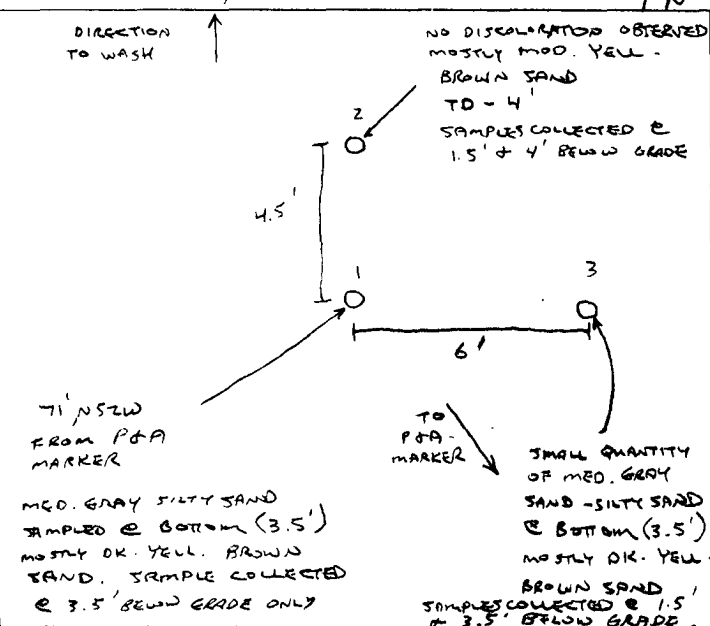 DIRECTION
TO WASH
NO DISCOLORATION OBSERVED
MOSTLY MOD. YELL.
BROWN SAND
TD - 4'
SAMPLES COLLECTED @
1.5' & 4' BELOW GRADE
2
4.5'
1
3
6'
71', N52W
FROM P&A
MARKER
MED. GRAY SILTY SAND
SAMPLED @ BOTTOM (3.5')
MOSTLY DK. YELL. BROWN
SAND. SAMPLE COLLECTED
@ 3.5' BELOW GRADE ONLY
TO
P&A
MARKER
SMALL QUANTITY
OF MED. GRAY
SAND - SILTY SAND
@ BOTTOM (3.5')
MOSTLY DK. YELL.
BROWN SAND
SAMPLES COLLECTED @ 1.5'
& 3.5' BELOW GRADE.